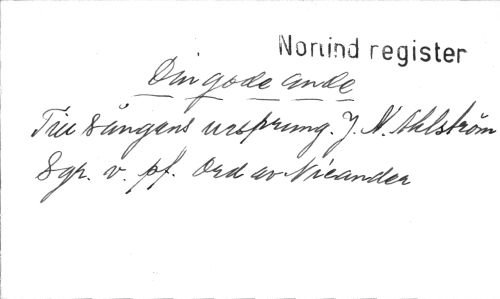 Norlind register
Din gode ande
Till sångens ursprung. J. N. Ahlström
Sgr. v. pf. Ord av Nicander